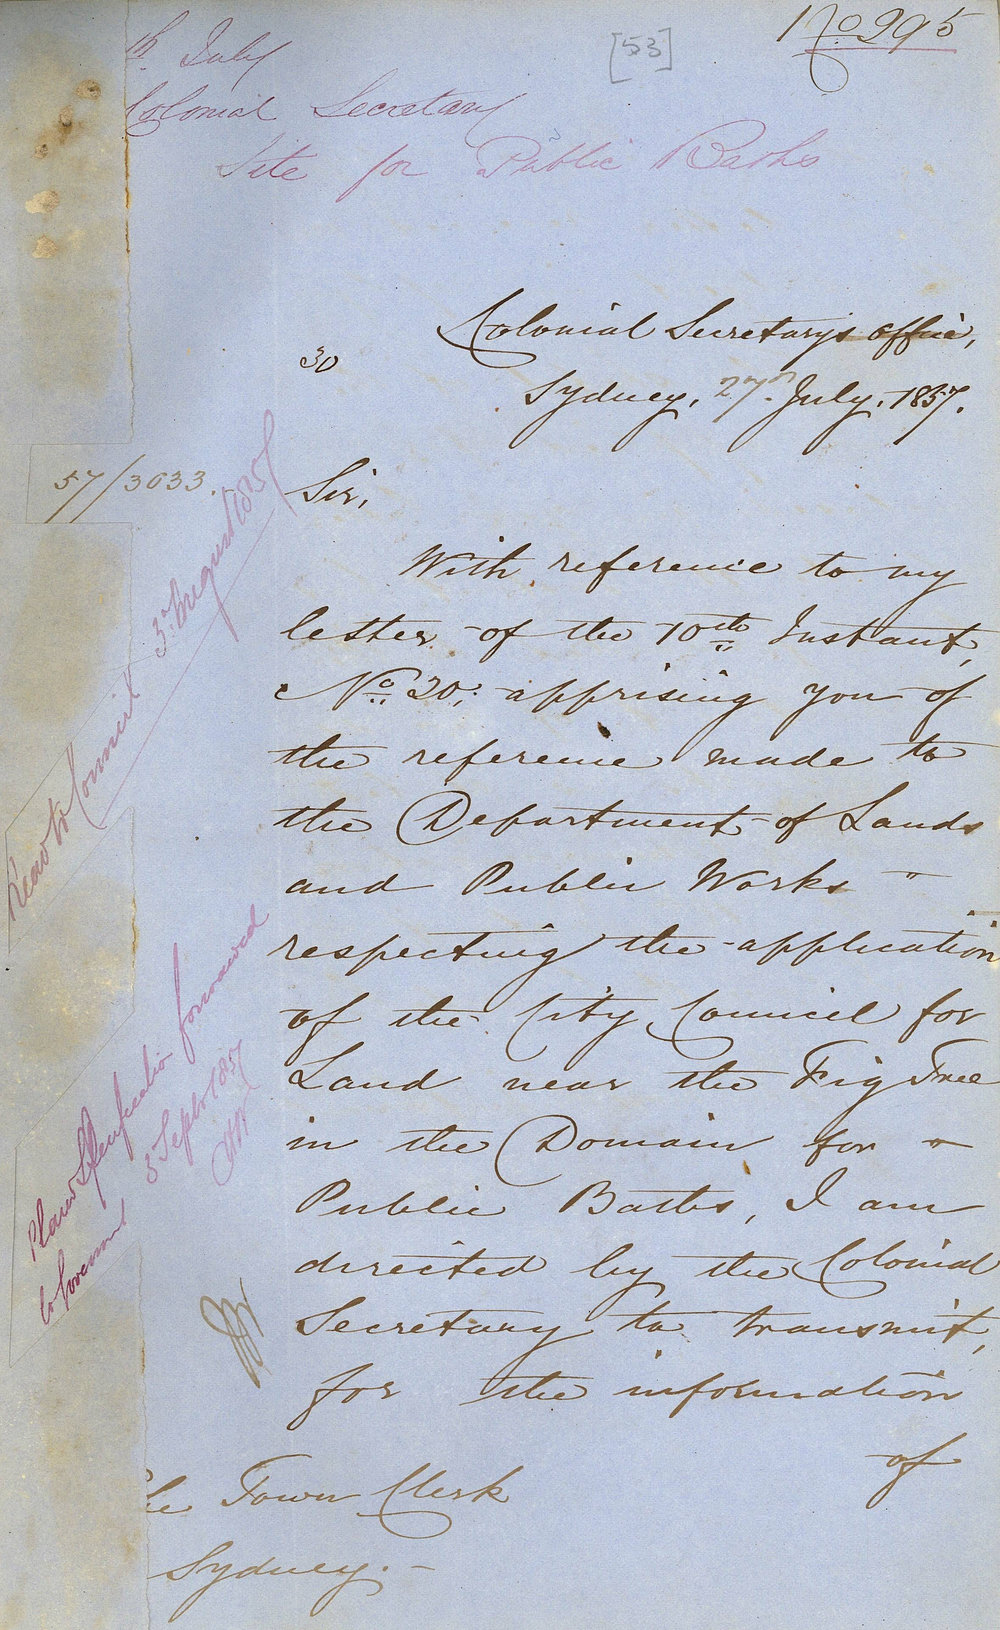 No 295
[53]
h July
Colonial Secretary
Site for Public Baths
Colonial Secretarys Office,
30
Sydney, 27th July, 1857.
57/3033.
Sir,
With reference to my
letter of the 10th Instant,
No. 20, apprising you of
the reference made to
the Department of Lands
and Public Works "
respecting the application
of the City Council for
Land near the Fig Tree
in the Domain for
Public Baths, I am
directed by the Colonial
Secretary to transmit,
for the information
of
he Town Clerk
Sydney.
Read to Council 3rd August 1857
Plan & Specification forwarded
to Government 3 Septr 1857